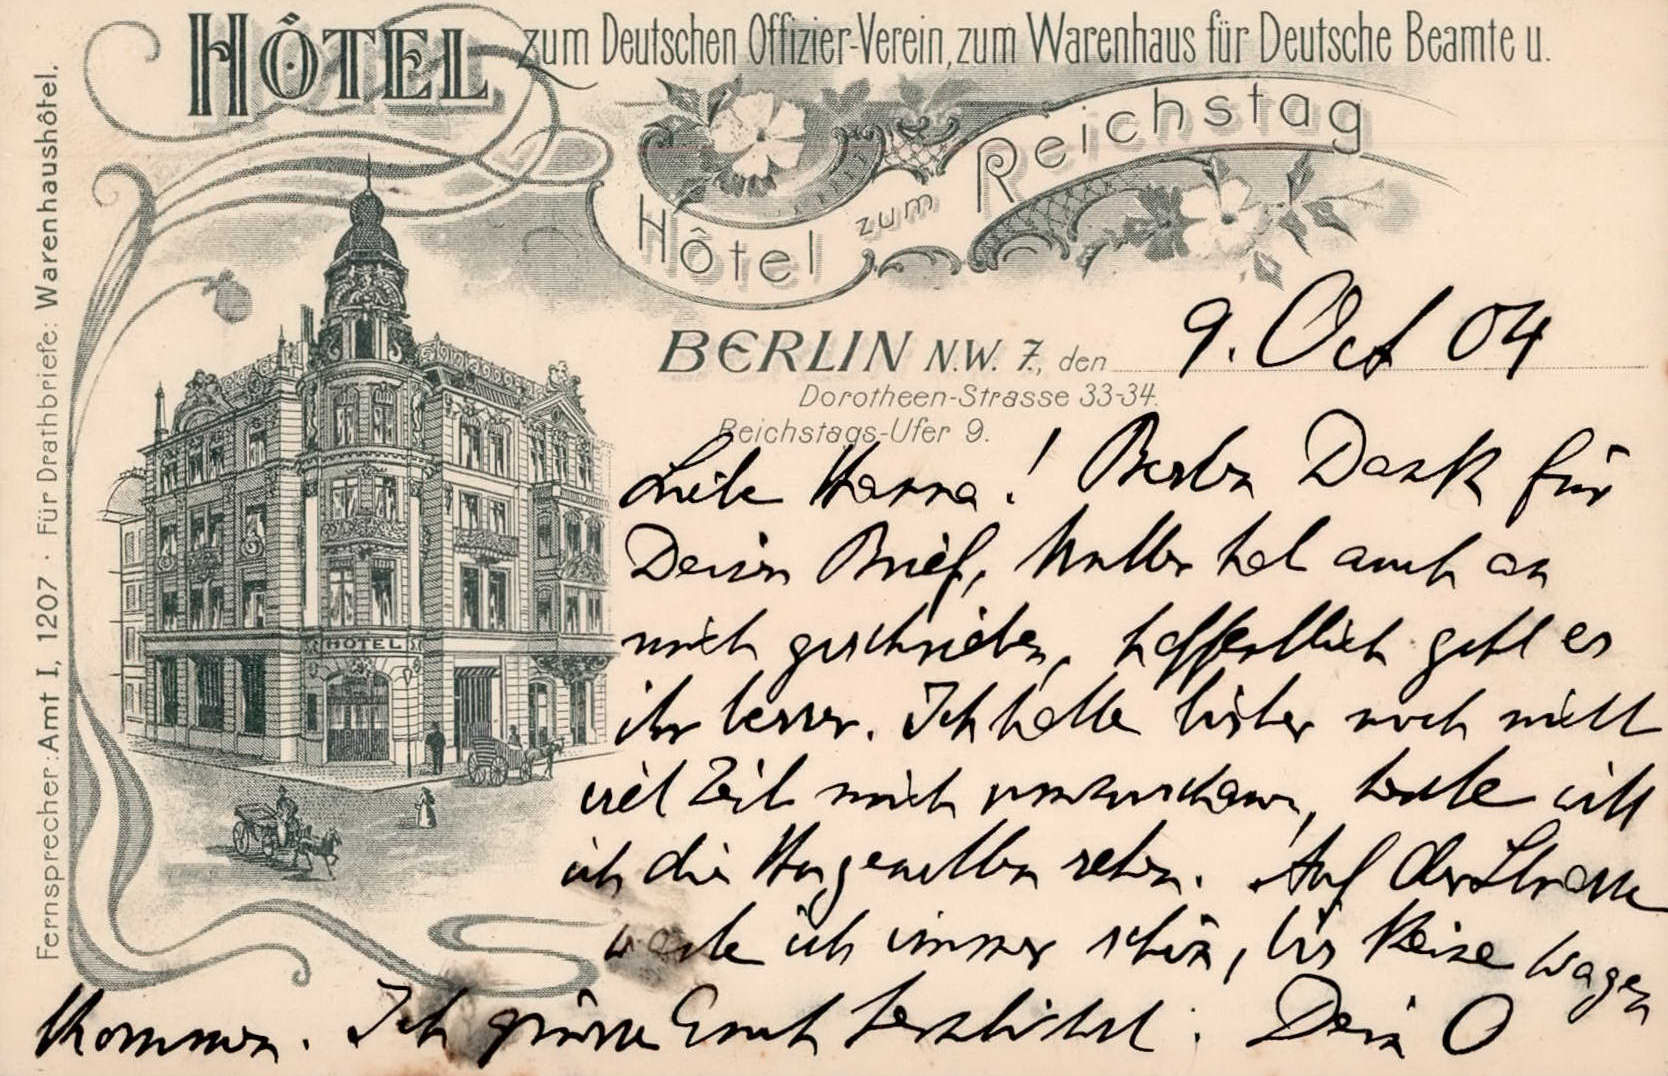 HÔTEL zum Deutschen Offizier-Verein, zum Warenhaus für Deutsche Beamte u.
Hôtel zum Reichstag
BERLIN N.W. 7., den 9. Oct 04
Dorotheen-Strasse 33-34.
Reichstags-Ufer 9.
Liebe Hanna! Besten Dank für
Deinen Brief, Mutter hat auch an
mich geschrieben, hoffentlich geht es
ihr besser. Ich hatte bisher noch nicht
viel Zeit mich umzuschauen, heute will
ich die sehen. Auf der Strasse
warte ich immer schön, bis keine Wagen
kommen. Ich grüsse Euch herzlichst. Dein O
HOTEL
Fernsprecher: Amt I, 1207 · Für Drathbriefe: Warenhaushôtel.